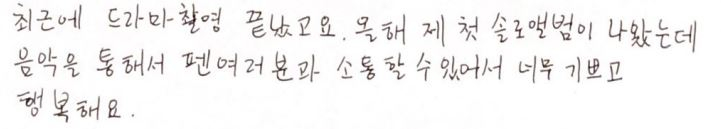 최근에 드라마 촬영 끝났고요. 올해 제 첫 솔로앨범이 나왔는데
음악을 통해서 펜여러분과 소통할 수 있어서 너무 기쁘고
행복해요.